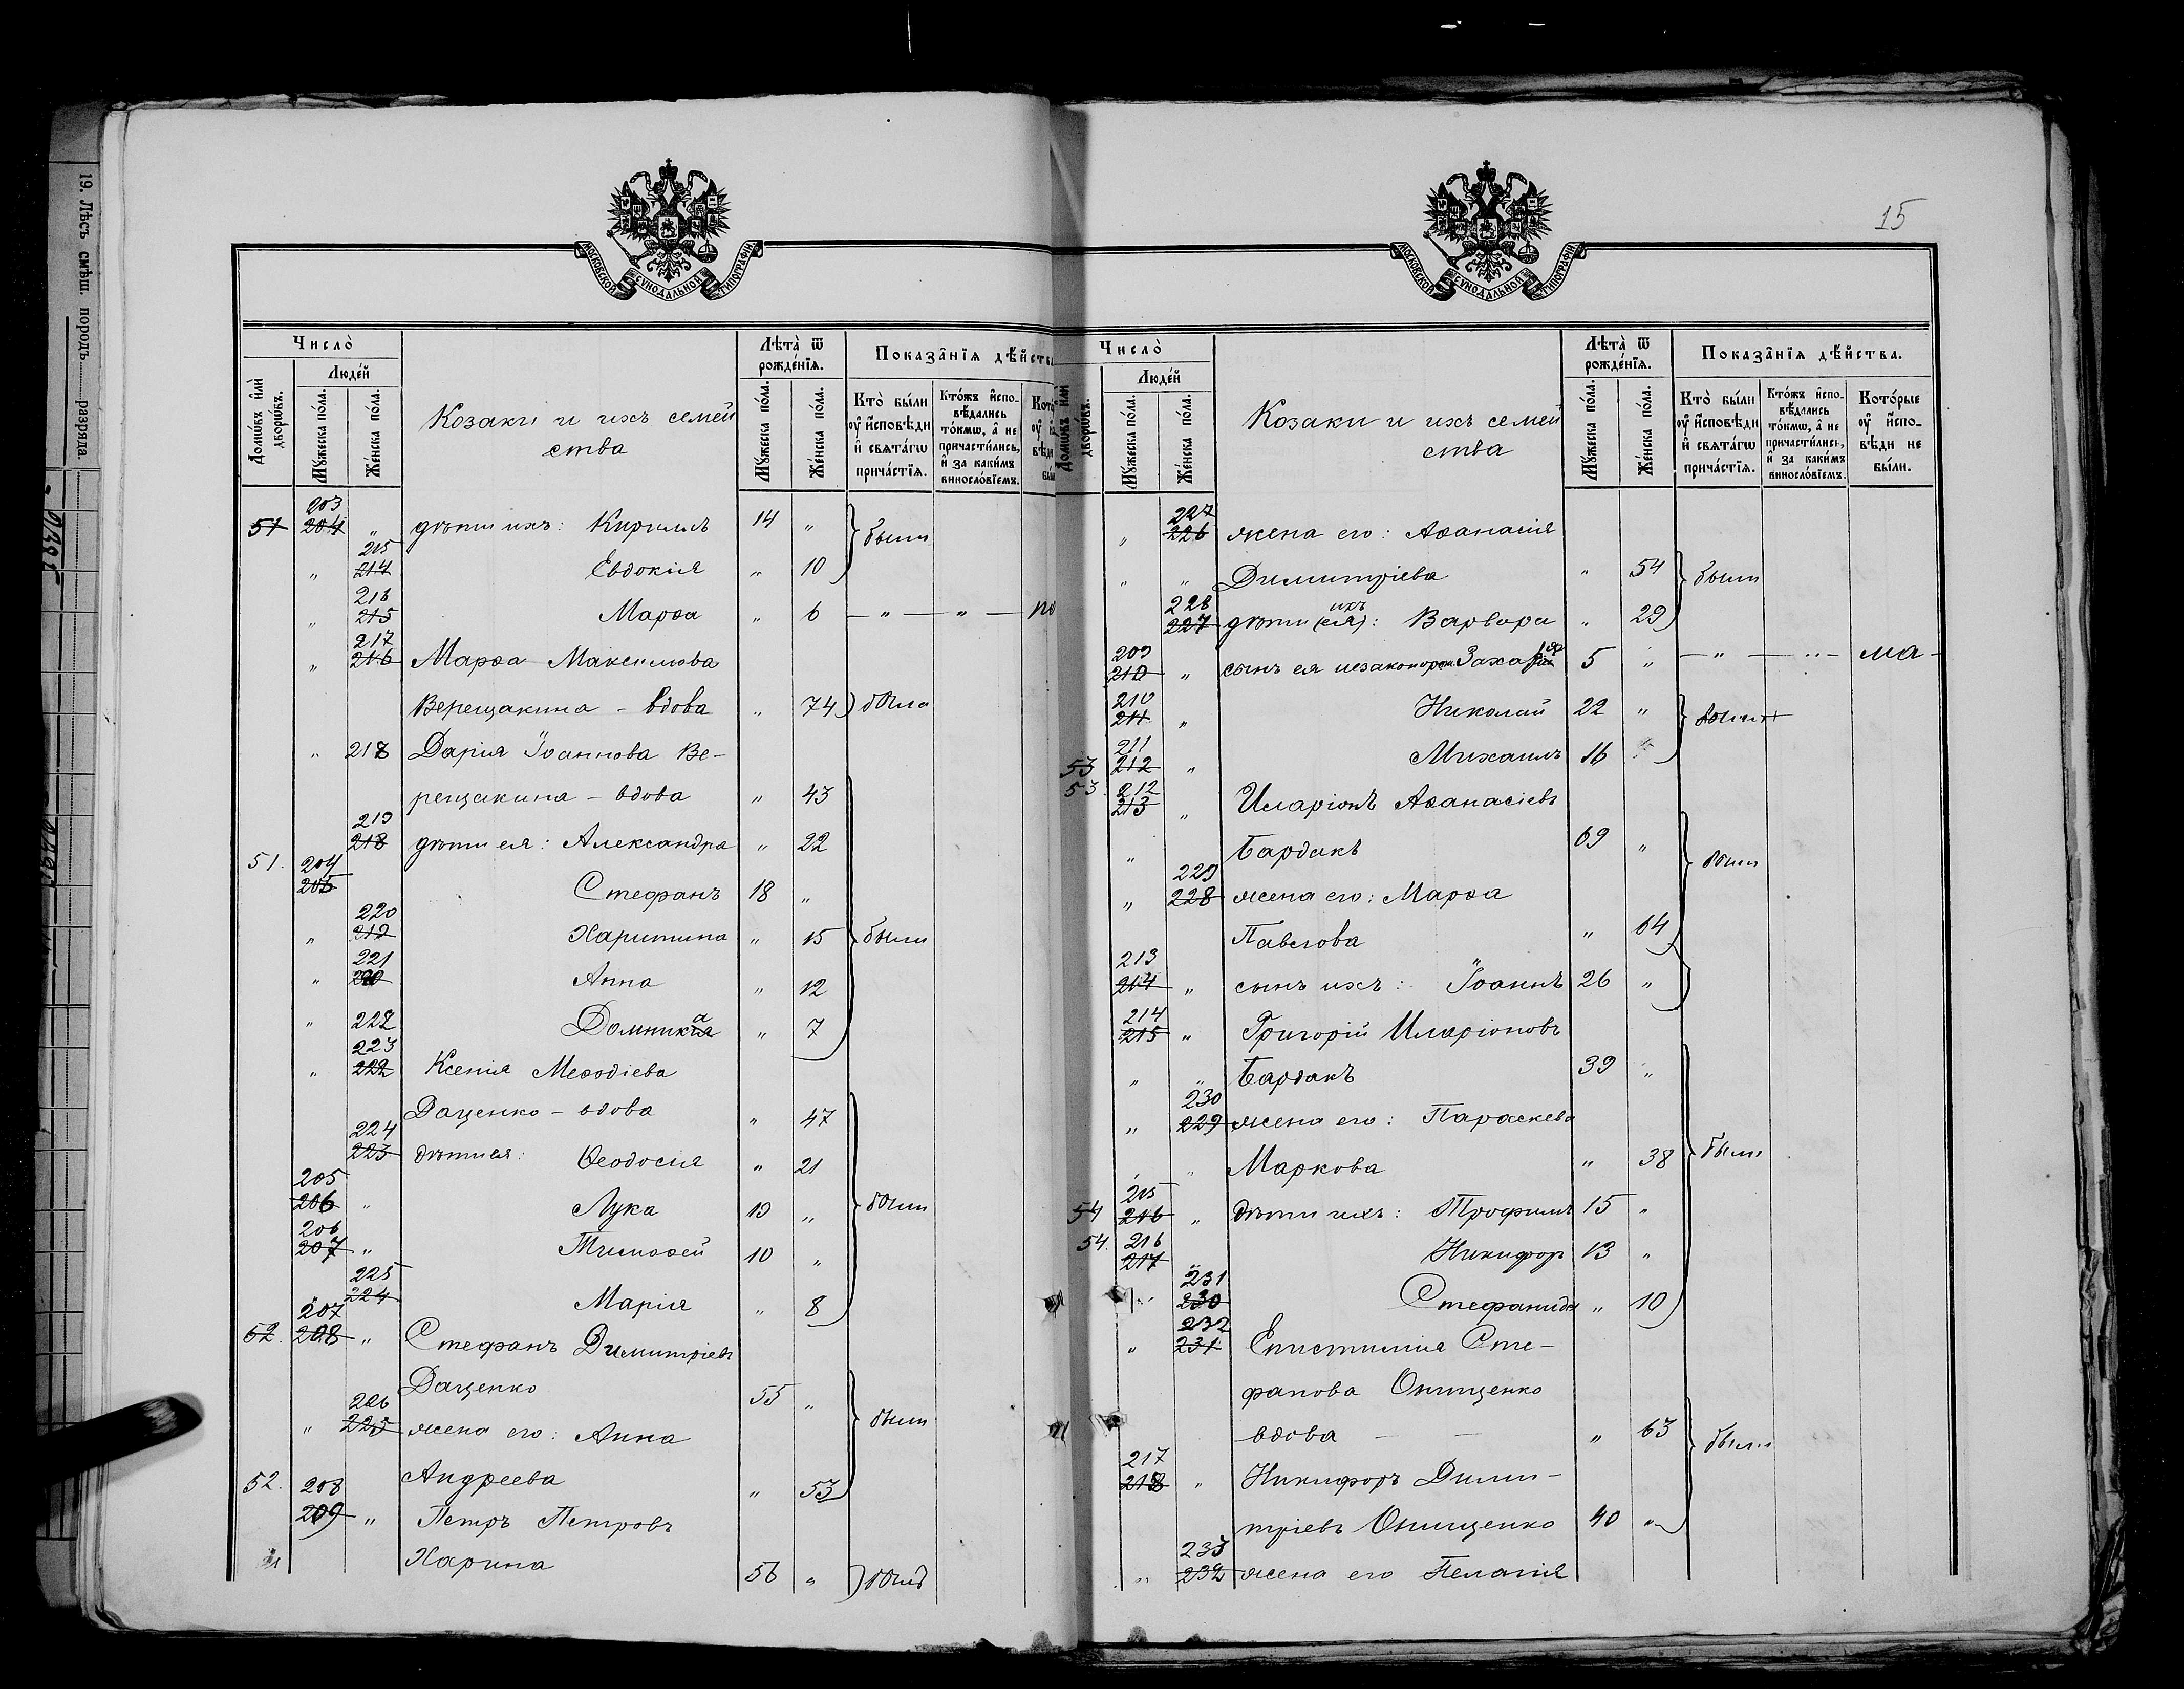 19. Лѣсъ смѣш. породъ разряда.
МОСКОВСКОЙ СѴНОДАЛЬНОЙ ТИПОГРАФІИ
Число̀
Люде́й
Домѡ́въ и҆лѝ дворѡ́въ.
Мꙋ́жеска по́ла.
Же́нска по́ла.
Козаки и ихъ семей
ства
Лѣта̀ ѿ рожде́нїѧ.
Мꙋ́жеска по́ла.
Же́нска по́ла.
Показа̑нїѧ дѣ́йства
Кто̀ бы́ли ᲂу҆ и҆́сповѣди и҆ свѧта́гѡ прича́стїѧ.
Кто́жъ и҆спо-вѣ́дались то́кмѡ, а҆ не причасти́лись, и҆ за каки́мъ винослѡ́вїемъ.
203
51 204 „ дѣти ихъ: Кириллъ 14 „ были
215
„ 214 Евдокія „ 10
216
„ 215 Марѳа „ 6 — „ — „ — по
217
„ 216 Марѳа Максимова
Верещакина – вдова „ 74 была
„ 218 Дарія Іоаннова Ве-
рещакина – вдова „ 43
219
218 дѣти ея: Александра „ 22
51. 204
205 Стефанъ 18 „
220
„ 219 Харитина „ 15 были
221
„ 220 Анна „ 12
„ 222 Домника „ 7
223
„ 222 Ксенія Меѳодіева
Даценко – вдова „ 47
224
223 дѣти ея: Ѳеодосія „ 21
205
206 „ Лука 19 „ были
206
207 „ Тимоѳей 10 „
225
224 Марія „ 8
207
52. 208 „ Стефанъ Димитріевъ
Даценко 55 „
226
„ 225 жена его: Анна были
Андреева „ 53
52. 208
209 „ Петръ Петровъ
Харина 56 „ былъ
15
МОСКОВСКОЙ СѴНОДАЛЬНОЙ ТИПОГРАФІИ
Число̀
Люде́й
Домѡ́въ и҆лѝ дворѡ́въ.
Мꙋ́жеска по́ла.
Же́нска по́ла.
Козаки и ихъ семей
ства
Лѣта̀ ѿ рожде́нїѧ.
Мꙋ́жеска по́ла.
Же́нска по́ла.
Показа̑нїѧ дѣ́йства.
Кто̀ бы́ли ᲂу҆ и҆́сповѣди и҆ свѧта́гѡ прича́стїѧ.
Кто́жъ и҆спо-вѣ́дались то́кмѡ, а҆ не причасти́лись, и҆ за каки́мъ винослѡ́вїемъ.
Кото́рые ᲂу҆ и҆спо-вѣди не бы́ли.
227
„ 226 жена его: Аѳанасія
„ „ Димитріева „ 54 были
228 ихъ
227 дѣти (ея): Варвара „ 29
209
210 „ сынъ ея незаконорож Захарія 5 „ — „ — „ — ма-
210
211 „ Николай 22 „ были
211
53 212 „ Михаилъ 16 „
53. 212
213 „ Иларіонъ Аѳанасіевъ
„ Бардакъ 69 „ были
229
„ 228 жена его: Марѳа
Павлова „ 64
213
214 „ сынъ ихъ: Іоаннъ 26 „
214
215 „ Григорій Иларіоновъ
„ „ Бардакъ 39 „
230
„ 229 жена его: Параскева
„ „ Маркова „ 38 были
215
54 216 „ дѣти ихъ: Трофимъ 15 „
54. 216
217 „ Никифоръ 13 „
231
„ 230 Стефанида „ 10
232
„ 231 Епистимія Сте-
фанова Онищенко
вдова — — „ 63 были
217
218 „ Никифоръ Дими-
тріевъ Онищенко 40 „
233
„ 232 жена его Пелагія